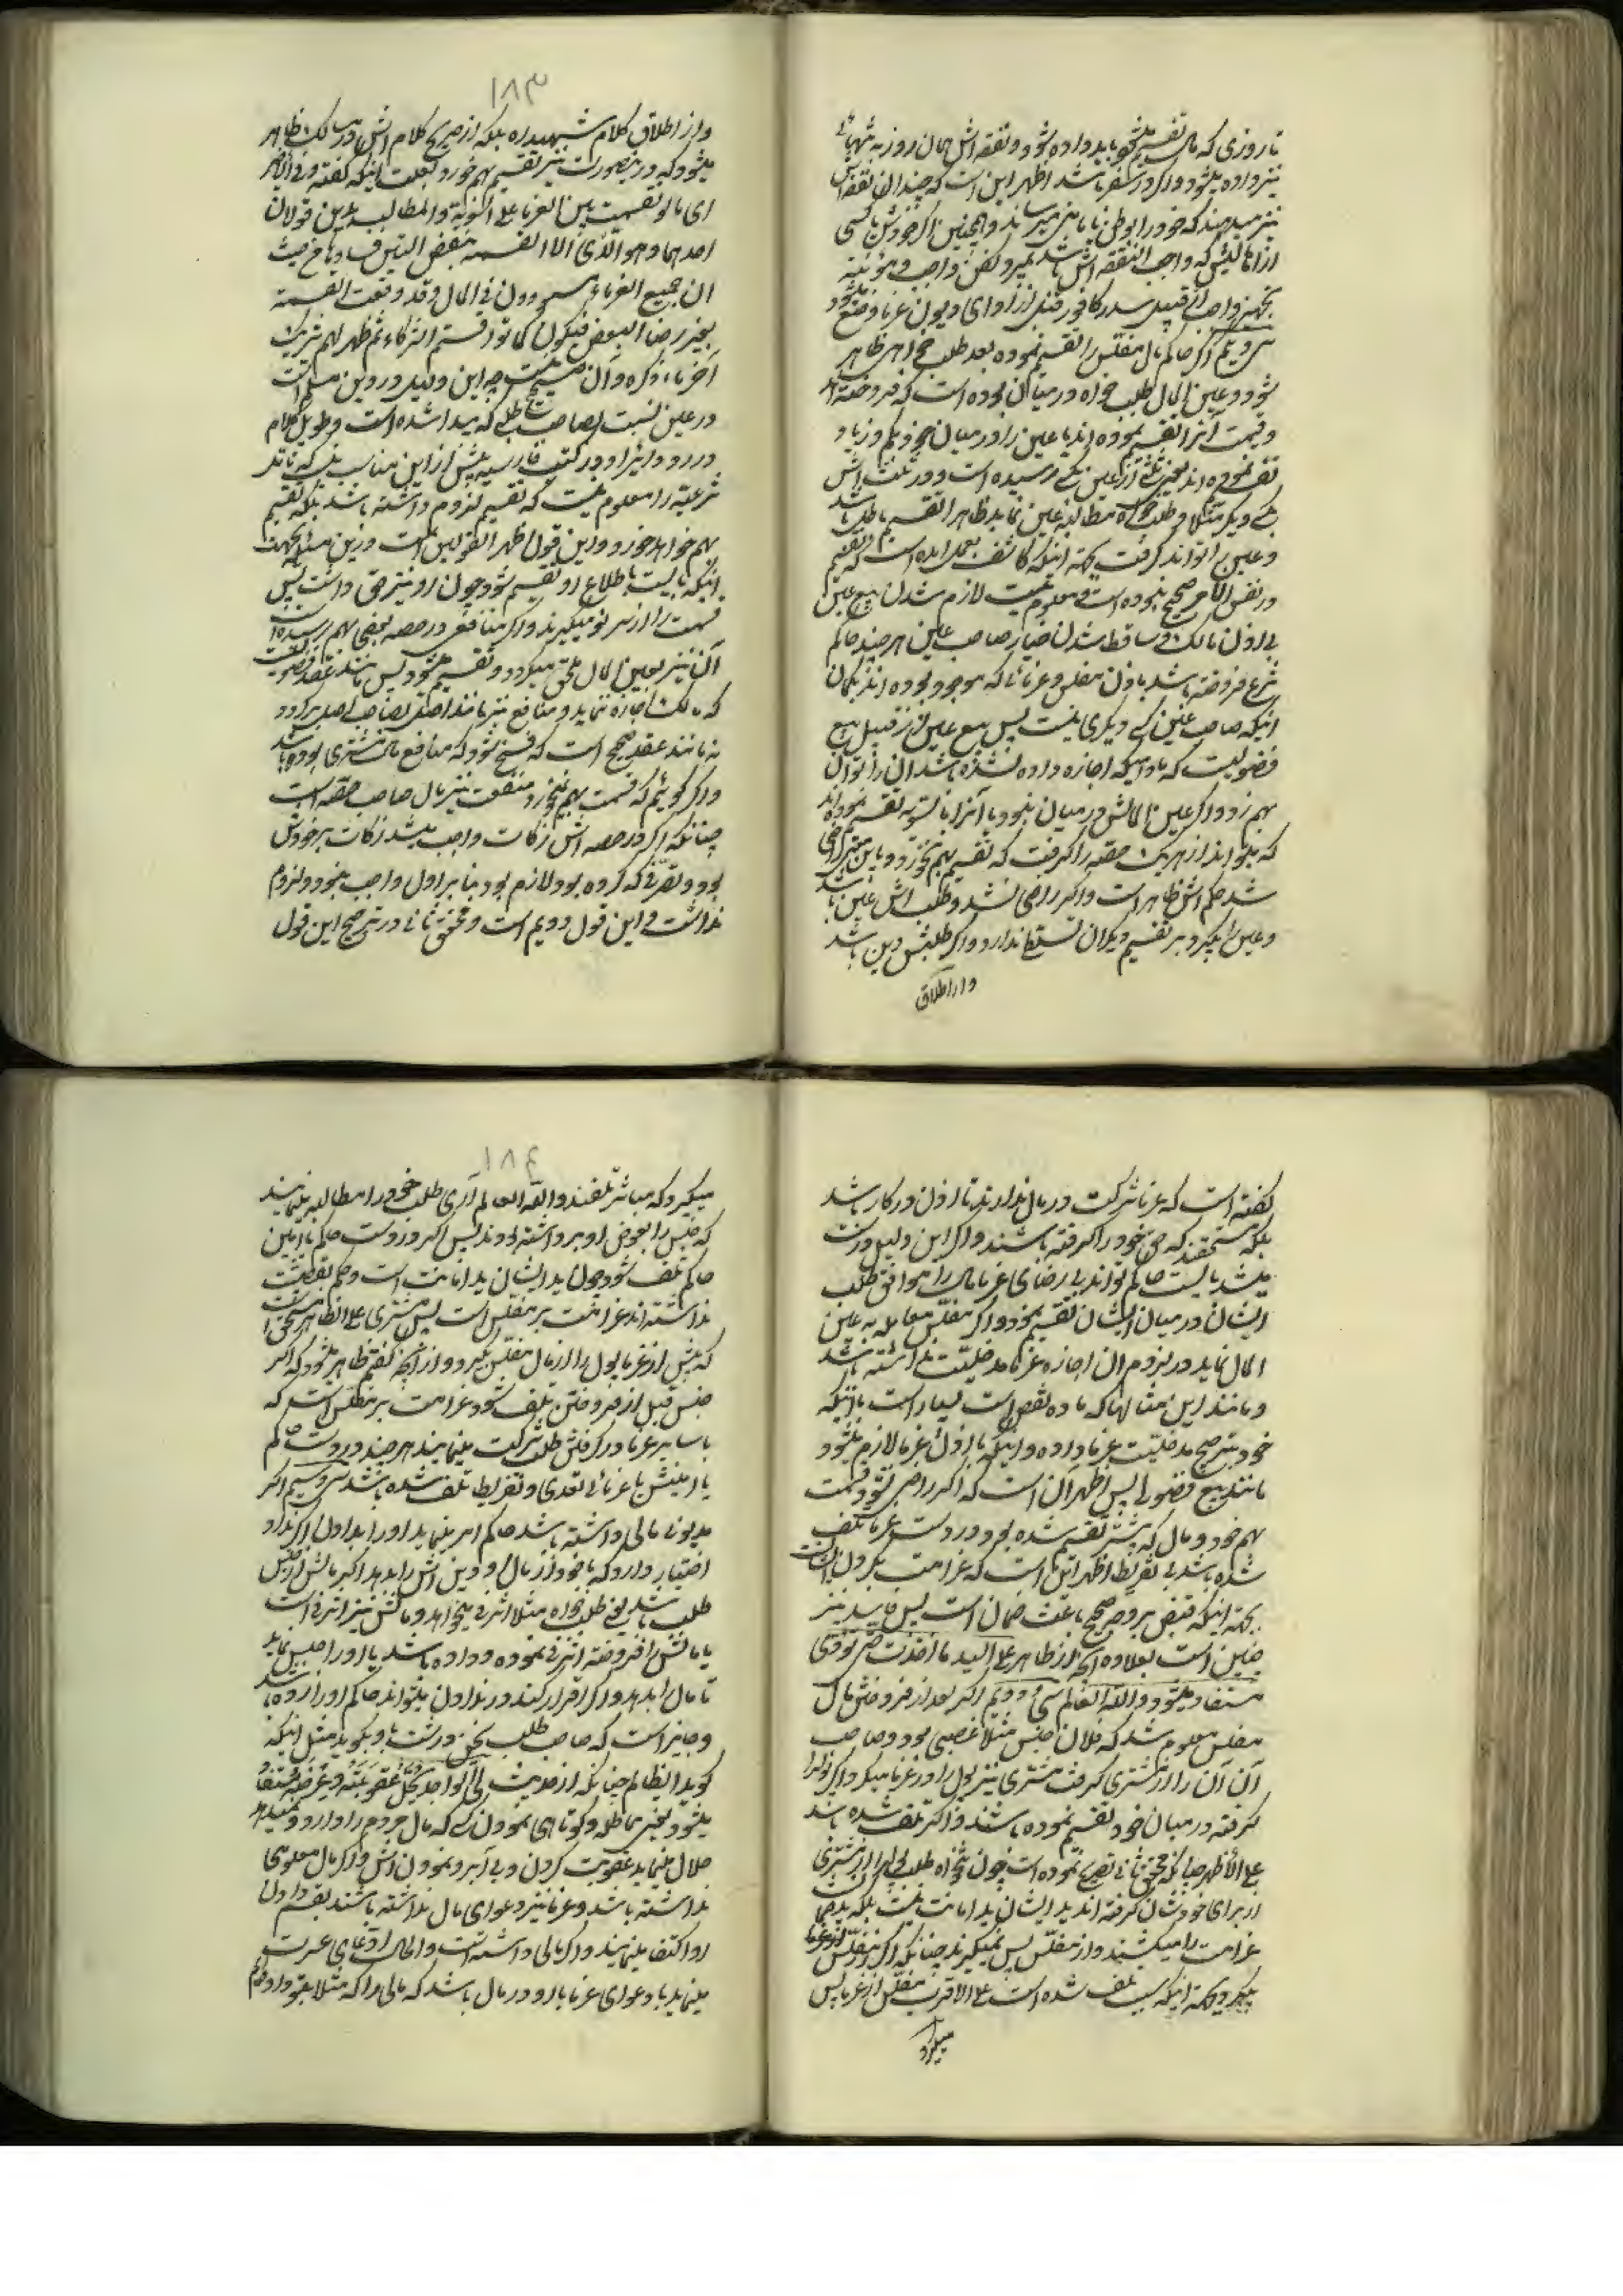 تا روزی که مال تقسیم میشود باید داده شود و نفقه اش همان روز به تنهائی
نیز داده میشود و اگر در سفر باشد اظهر این است که چندان نفقه اش
نیز میدهند که خود را بوطن یا مأمنی میرساند و همچنین اگر خودش یا کسی
از اهالیش که واجب النفقه اش باشد بمیرد کفن واجب و مؤنه
تجهیز واجب از قبیل سدر و کافور قبل از ادای دیون غرما وضع میشود
سی و یکم اگر حاکم مال مفلس را تقسیم نموده بعد طلب خواهی ظاهر
شود و عین المال طلب خواه در میان بوده است که فروخته اند
و قیمت انرا تقسیم نموده اند یا عین را در میان بخود کم و زیاد
تقسیم نموده اند بغیر ثلثی از عین بکسی رسیده است و دو ثلث اش
بکسی دیگر مثلا و طلب خواه مطالبه عین نماید ظاهرا تقسیم باطل باشد
و عین را تواند گرفت بجهة اینکه کاشف بعمل امده است که تقسیم
در نفس الامر صحیح نبوده است و معلوم نیست لازم شدن بیع عین
بی اذن مالک و ساقط شدن خیار صاحب عین هر چند حاکم
شرع فروخته باشد باذن مفلس و غرمائی که موجود بوده اند بگمان
اینکه صاحب عین کسی دیگری نیست پس بیع عین از قبیل بیع
فضولیست که مادامیکه اجازه داده نشده باشد ان را توان
بهم زد و اگر عین المالش در میان نبود یا آنرا بالسویه تقسیم نموده اند
که میتواند از هر یک حصه را گرفت که تقسیم بهم نخورد و باین معنی راضی
شد حکم اش ظاهر است و اگر راضی نشد و طلب اش عین باشد
و عین را بگیرد بر تقسیم دیگران تسلط ندارد و اگر طلبش دین باشد
و از اطلاق
۱۸۳
و از اطلاق کلام شهید ره بلکه از صریح کلام اش در مسالک ظاهر
میشود که در ینصورت نیز تقسیم بهم خورد بعلت اینکه گفته و فی الاخر
ای ما لو تقسمت بین الغرماء علی السویة و المطالب بدین قولان
احدهما و هو الذی الا القسمة بنقض التبین فسادها من حیث
ان جمیع الغرماء مستوون فی المال و قد وقعت القسمة
بغیر رضا البعض فیکون کما لو اقتسم الشرکاء ثم ظهر لهم شریک
آخر ما ذکره و آن صحیح نیست چه این دلیل در دین مسلم است
در عین نسبت بصاحب طلبی که پیدا شده است و طویل کلام
در رد و ایراد در کتب فارسیه بیش از این مناسب نیست که تا قدر
شرعیة را معلوم نیست که تقسیم لزوم داشته باشد بلکه تقسیم
بهم خواهد خورد و این قول اظهر القولین است و در این مسئله بجهت
اینکه بایست باطلاع او تقسیم شود چون او نیز حقی داشت پس
قسمت را از سر نو میگیرند و اگر منافعی در حصه بعضی بهم رسیده است
آن نیز بعین المال ملحق میگردد و تقسیم میشود پس مانند عقد فضولیست
که مالک اجازه ننماید و منافع نیز مانند اصل بصاحب اصل برگردد
نه مانند عقد صحیح است که فسخ شود که منافع مال مشتری بوده باشد
و اگر گوئیم که قسمت بهم نخورد منفعت نیز مال صاحب حصه است
چنانکه اگر در حصه اش زکات واجب میشد زکات بر خودش
بود و تصرفی که کرده بود لازم بود بنا بر اول واجب نبود و لزوم
نداشت و این قول دویم است و محقق ثانی در ترجیح این قول
گفته است که غرما شرکت در مال ندارند تا اذن در کار باشد
بلکه مستحقند که حق خود را گرفته باشند و اگر این دلیل درست
میشد بایست حاکم تواند بی رضای غرما مال را موافق طلب
ایشان در میان ایشان تقسیم نمود و اگر مفلس معامله به عین
المال نماید در لزوم ان اجازه غرما مدخلیت نداشته باشد
و مانند این مثالها که ماده نقض است بسیار است با اینکه
خود بترجیح مدخلیت غرما داده و اینکه باذن غرما لازم میشود
مانند بیع فضولی پس اظهر آن است که اگر راضی نشود قسمت
بهم خورد و مال که پیشتر تقسیم شده بود و در دست غرما تلف
شده باشد بی تفریط اظهر آن است که غرامت بر دل ایشان است
بجهة اینکه قبض بر وجه صحیح باعث ضمان است پس فاسد نیز
چنین است بعلاوه انچه از ظاهر علی الید ما اخذت حتی تؤدی
مستفاد میشود و الله العالم سی و دویم اگر بعد از فروختن مال
مفلس معلوم شد که فلان جنس مثلا غصبی بود و صاحب
آن آن را از مشتری گرفت مشتری نیز پول را از غرما میگیرد اگر پول را
گرفته در میان خود تقسیم نموده باشند و اگر تلف شده باشد
علی الاظهر چنانکه محقق ثانی تصریح نموده است چون بخواه طلب پول را از مشتری
از برای خودشان گرفته اند ید ایشان ید امانت نیست بلکه ید ضمان
غرامت را میکشند و از مفلس پس نمیگیرند چنانکه اگر از مفلس
بگیرد بجهة اینکه سبب تلف شده است علی الاقرب مفلس از غرما پس
میگیرد
۱۸۴
میگیرد که مباشر تلفند و الله العالم آری طلب خود را مطالبه مینمایند
که جنس را بعوض او برداشته بودند پس اگر در دست حاکم یا امین
حاکم تلف شود چون ید ایشان ید امانت است و حکم بقضیت
نداشته اند غرامت بر مفلس است پس مشتری علی الظاهر مستحق است
که پیش از غرما پول را از مال مفلس بگیرد و از آنچه گفتم ظاهر میشود که اگر
جنس قبل از فروختن تلف شود غرامت بر مفلس است که
با سایر غرما در گرفتن طلب شرکت مینمایند هر چند در دست حاکم
یا امینش یا غرما بی تعدی و تفریط تلف شده باشد سی و سیم اگر
مدیون مالی داشته باشد حاکم امر مینماید او را بدادن اگر نداد
اختیار دارد که ماخوذ از مال او دین اش را بدهد اگر مالش از جنس
طلب باشد یعنی طلب خواه مثلا اشرفی میخواهد و مالش نیز اشرفی است
یا مالش را فروخته اشرفی نموده و داده باشد یا او را حبس نماید
تا مال را بدهد و اگر اقرار کند و ندادن میتواند حاکم او را زده باشد
و جایز است که صاحب طلب سخن درشت باو بگوید مثل اینکه
گوید ایظالم چنانکه از حدیث لی الواجد یحل عقوبته و عرضه مستفاد
میشود یعنی مماطله و کوتاهی نمودن کسی که مال مردم را دارد و نمیدهد
حلال مینماید عقوبت کردن و بی آبرو نمودن اش و اگر مال معلومی
نداشته باشد و غرما نیز دعوای مال نداشته باشند بقسم دادن
او اکتفا مینمایند و اگر مالی داشته است و الحال ادعای عسرت
مینماید یا دعوای غرما با او در مال باشد که مالی را که مثلا بقرض داده ام